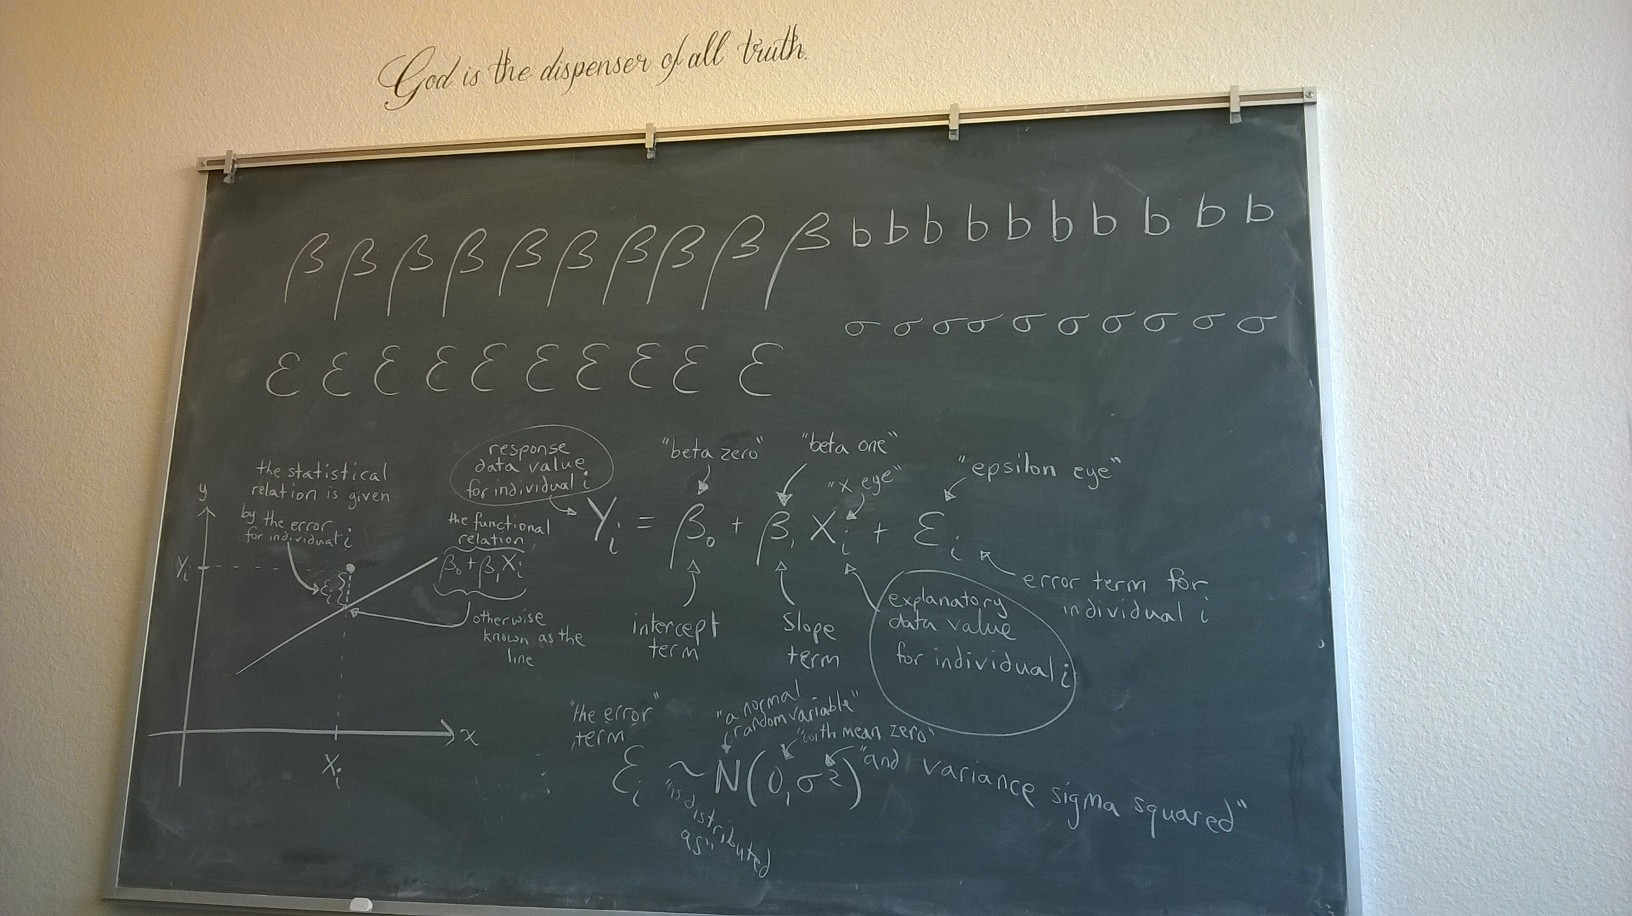 God is the dispenser of all truth.
β β β β β β β β β β b b b b b b b b b b
σ σ σ σ σ σ σ σ σ σ
ε ε ε ε ε ε ε ε ε ε
the statistical
relation is given
by the error
for individual i
y
Yᵢ
εᵢ
Xᵢ
x
the functional
relation
β₀ + β₁Xᵢ
otherwise
known as the
line
response
data value
for individual i
"beta zero"
"beta one"
"x eye"
"epsilon eye"
Yᵢ = β₀ + β₁ Xᵢ + εᵢ
intercept
term
slope
term
explanatory
data value
for individual i
error term for
individual i
"the error
term"
"a normal
random variable"
"with mean zero"
"and variance sigma squared"
εᵢ ~ N(0, σ²)
"is distributed
as"